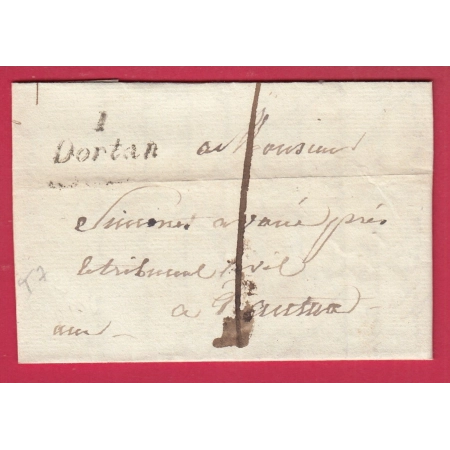 1
Dortan
a Monsieur
Simonet avoué près
le tribunal Civil
a Nantua
ain